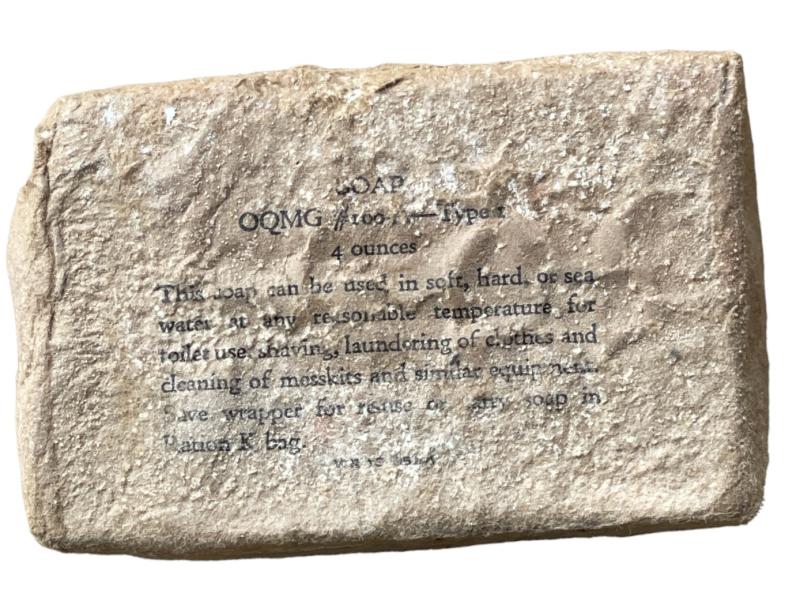 SOAP
OQMG Type 1
4 ounces
This soap can be used in soft, hard, or sea
water at any reasonable temperature for
toilet use, shaving, laundering of clothes and
cleaning of messkits and similar equipment.
Save wrapper for reuse or carry soap in
Ration K bag.